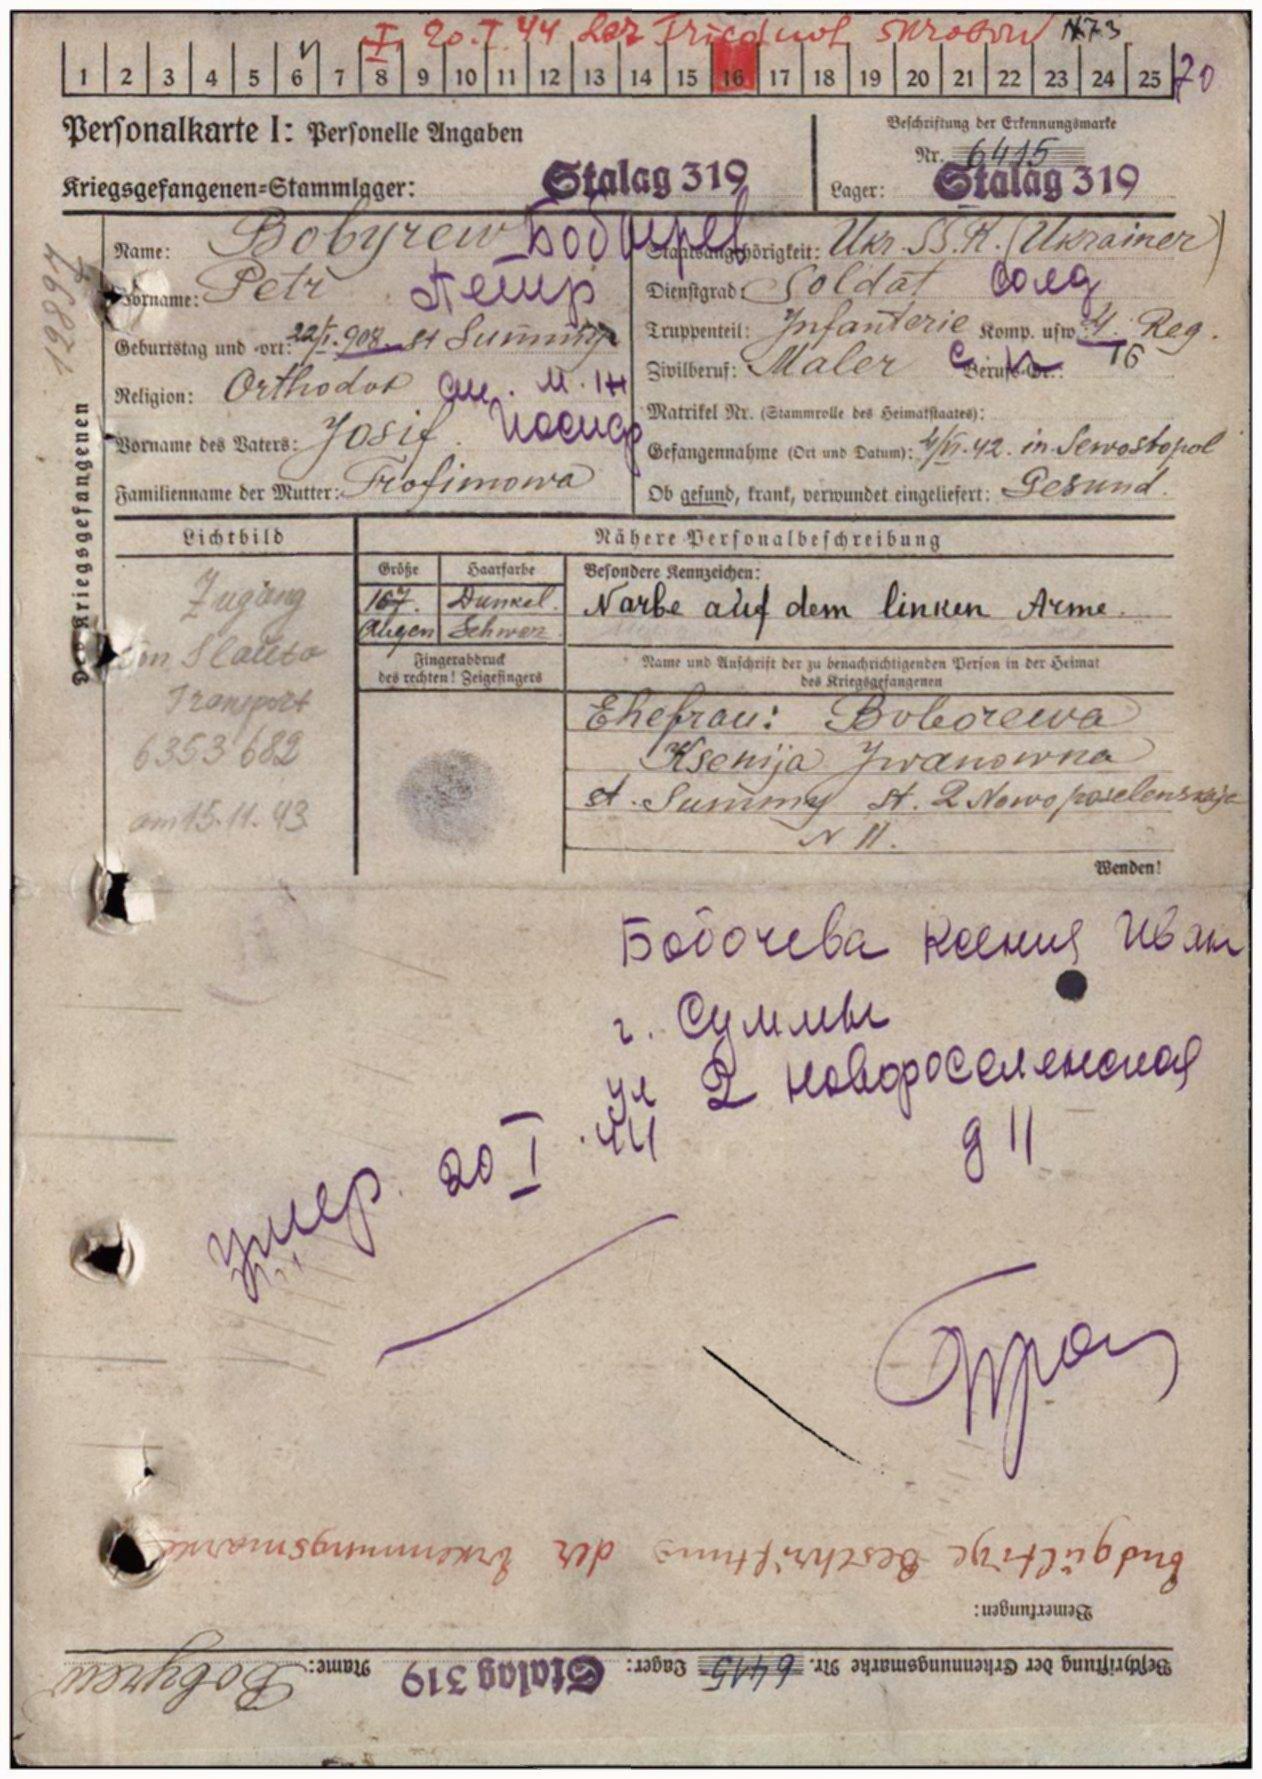 I. 20.I.44 Laz Friedhof Skrobow N 73
1 2 3 4 5 6 7 8 9 10 11 12 13 14 15 16 17 18 19 20 21 22 23 24 25 70
Personalkarte I: Personelle Angaben
Kriegsgefangenen-Stammlager: Stalag 319
Beschriftung der Erkennungsmarke
Nr. 6415
Lager: Stalag 319
12897
Des Kriegsgefangenen
Name: Bobyrew Бобырев
Vorname: Petr Петр
Geburtstag und -ort: 22/I.908. st Summy
Religion: Orthodox
Vorname des Vaters: Josif. Иосиф
Familienname der Mutter: Trofimowa
Staatsangehörigkeit: Ukr.SS.R. (Ukrainer)
Dienstgrad: Soldat Солд
Truppenteil: Infanterie Komp. usw.: 4. Reg.
Zivilberuf: Maler Berufs-Gr.: 16
Matrikel Nr. (Stammrolle des Heimatstaates):
Gefangennahme (Ort und Datum): 4/VI.42. in Sewostopol
Ob gesund, krank, verwundet eingeliefert: Gesund.
Lichtbild
Zugang
von Slauta
Transport
6353 682
am 15.11.43
Nähere Personalbeschreibung
Größe Haarfarbe
167. Dunkel.
Augen Schwarz
Besondere Kennzeichen:
Narbe auf dem linken Arme.
Fingerabdruck
des rechten! Zeigefingers
Name und Anschrift der zu benachrichtigenden Person in der Heimat
des Kriegsgefangenen
Ehefrau: Boborewa
Ksenija Iwanowna
st. Summy st. 2 Nowoposelenskaje
N 11.
Wenden!
Бобочева Ксения Иван
г. Суммы
ул 2 Новопоселенская
д 11
умер. 20 I .44
Endgültige Beschriftung der Erkennungsmarke
Bemerkungen:
Beschriftung der Erkennungsmarke Nr. 6415 Lager: Stalag 319 Name: Bobyrew